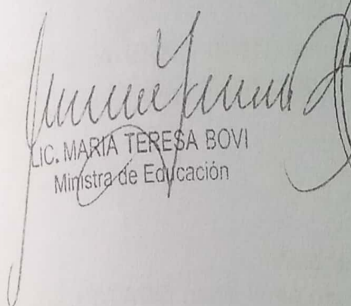 LIC. MARIA TERESA BOVI
Ministra de Educación